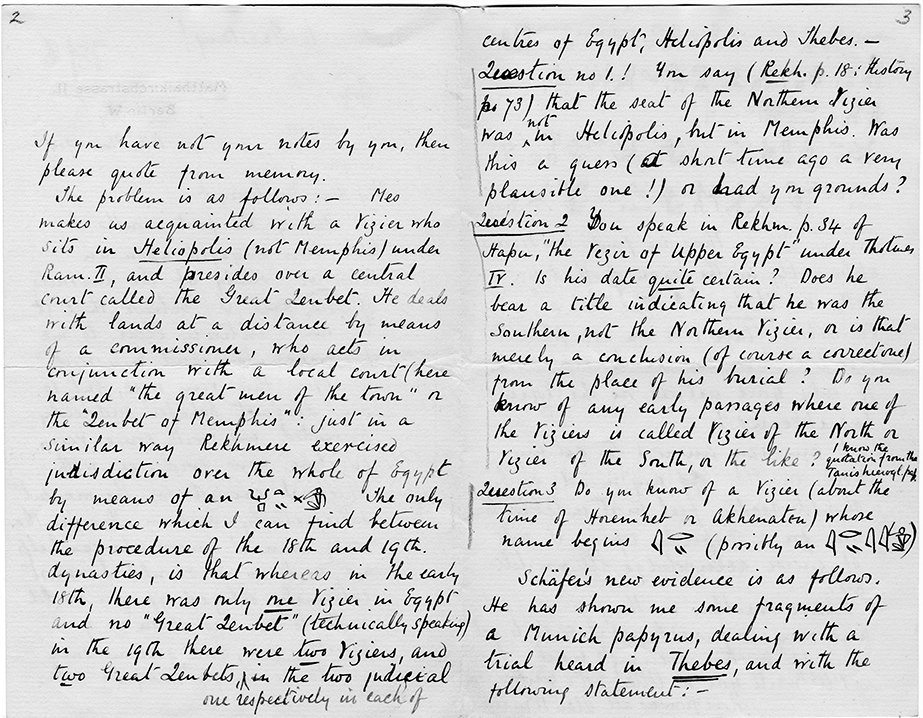 2
If you have not your notes by you, then
please quote from memory.
The problem is as follows:— Mes
makes us acquainted with a Vizier who
sits in Heliopolis (not Memphis) under
Ram. II, and presides over a central
court called the Great Qenbet. He deals
with lands at a distance by means
of a commissioner, who acts in
conjunction with a local court (here
named "the great men of the town" or
the "Qenbet of Memphis": just in a
similar way Rekhmere exercised
jurisdiction over the whole of Egypt
by means of an The only
difference which I can find between
the procedure of the 18th and 19th.
dynasties, is that whereas in the early
18th, there was only one Vizier in Egypt
and no "Great Qenbet" (technically speaking)
in the 19th there were two Viziers, and
two Great Qenbets, in the two judicial
one respectively in each of
3
centres of Egypt, Heliopolis and Thebes.—
Question no 1.! You say (Rekh. p. 18: History
p. 73) that the seat of the Northern Vizier
was not in Heliopolis, but in Memphis. Was
this a guess (at short time ago a very
plausible one!) or had you grounds?
Question 2 You speak in Rekhm. p. 34 of
Hapu, "the Vezir of Upper Egypt" under Thotmes
IV. Is his date quite certain? Does he
bear a title indicating that he was the
Southern, not the Northern Vizier, or is that
merely a conclusion (of course a correct one)
from the place of his burial? Do you
know of any early passages where one of
the Viziers is called Vizier of the North or
Vizier of the South, or the like? I know the
quotation from the
Tanis hierogl. pap.
Question 3 Do you know of a Vizier (about the
time of Horemheb or Akhenaten) whose
name begins (possibly an )
Schäfer's new evidence is as follows.
He has shown me some fragments of
a Munich papyrus, dealing with a
trial heard in Thebes, and with the
following statement:—